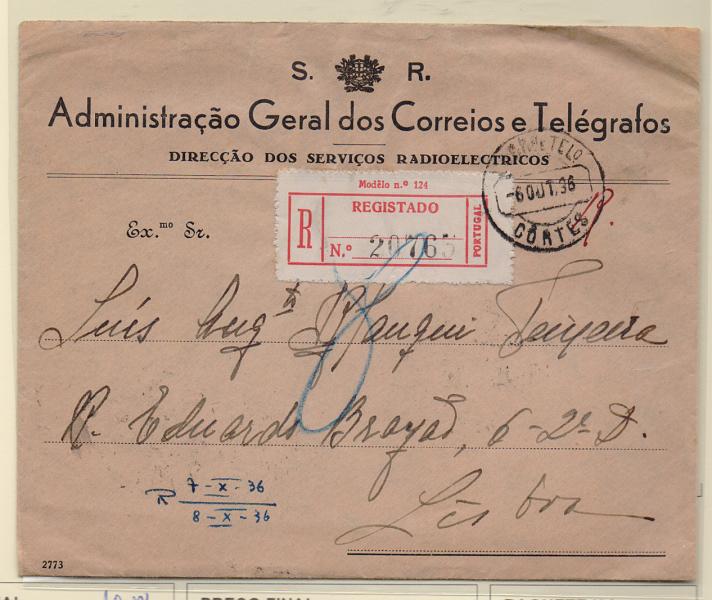 S. R.
Administração Geral dos Correios e Telégrafos
DIRECÇÃO DOS SERVIÇOS RADIOELECTRICOS
Modêlo n.º 124
R
REGISTADO
N.º 20765
PORTUGAL
-6 OUT. 36
CÔRTES
R.
Ex.mo Sr.
8
Luís Aug.to Teixeira
R. Eduardo Brazão, 6-2º D.
Lisboa
R 7-X-36
8-X-36
2773